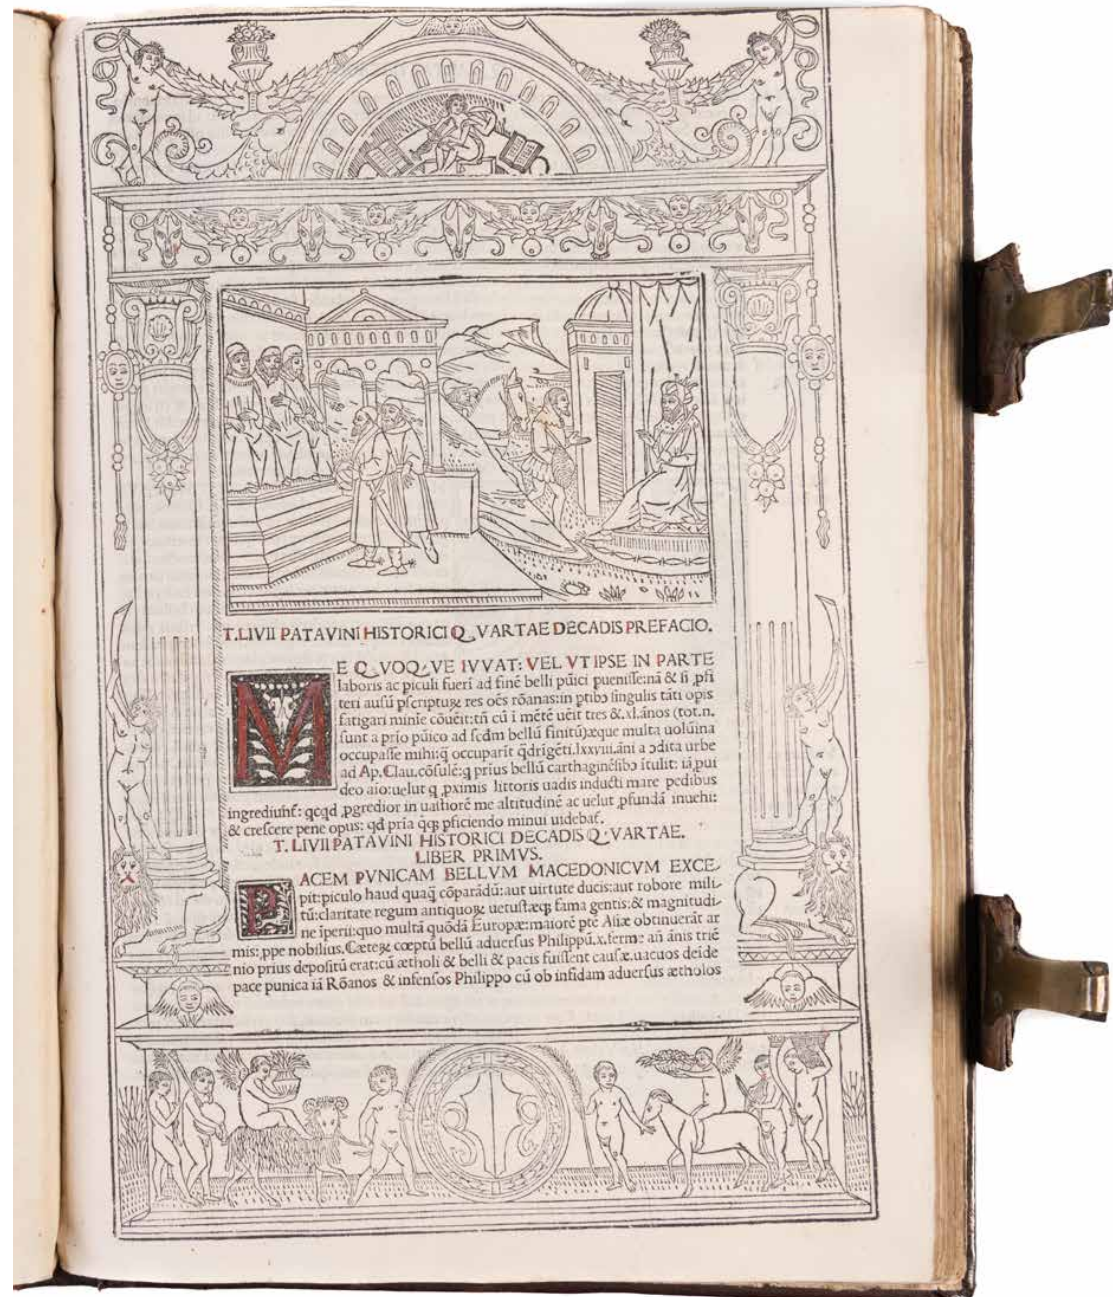 T. LIVII PATAVINI HISTORICI Q VARTAE DECADIS PREFACIO.
ME Q VOQ VE IVVAT: VEL VT IPSE IN PARTE
laboris ac piculi fueri ad finē belli pūici puenisse: nā & si ꝓfi
teri ausū pscripturꝝ res oēs rōanas: in ptibꝰ singulis tāti opis
fatigari minīe cōuēit: tn̄ cū i mētē uēit tres &. xl. ānos (tot. n.
sunt a prīo pūico ad scdm bellū finitū) æque multa uolūina
occupasse mihi: q̄ occuparīt q̄drigēti. lxxviii. āni a ↄdita urbe
ad Ap. Clau. cōsulē: q prius bellū carthaginēsibꝰ ītulit: iā ꝓui
deo aīo: uelut q ꝓximis littoris uadis inducti mare pedibus
ingrediunt̄: qcqd ꝓgredior in uastiorē me altitudinē ac uelut ꝓfundā inuehi:
& crescere pene opus: qd pria q̄q; pficiendo minui uidebat̄.
T. LIVII PATAVINI HISTORICI DECADIS Q VARTAE.
LIBER PRIMVS.
PACEM PVNICAM BELLVM MACEDONICVM EXCE-
pit: piculo haud quaq̄ cōparādū: aut uirtute ducis: aut robore mili
tū: claritate regum antiquoꝝ uetustæq; fama gentis: & magnitudi-
ne īperii: quo multā quōdā Europæ: maiorē ptē Asiæ obtinuerāt ar
mis: ꝓpe nobilius. Cæteꝝ cœptū bellū aduersus Philippū. x. ferme an̄ ānis triē
nio prius depositū erat: cū ætholi & belli & pacis fuissent causæ. uacuos deīde
pace punica iā Rōanos & infensos Philippo cū ob infidam aduersus ætholos